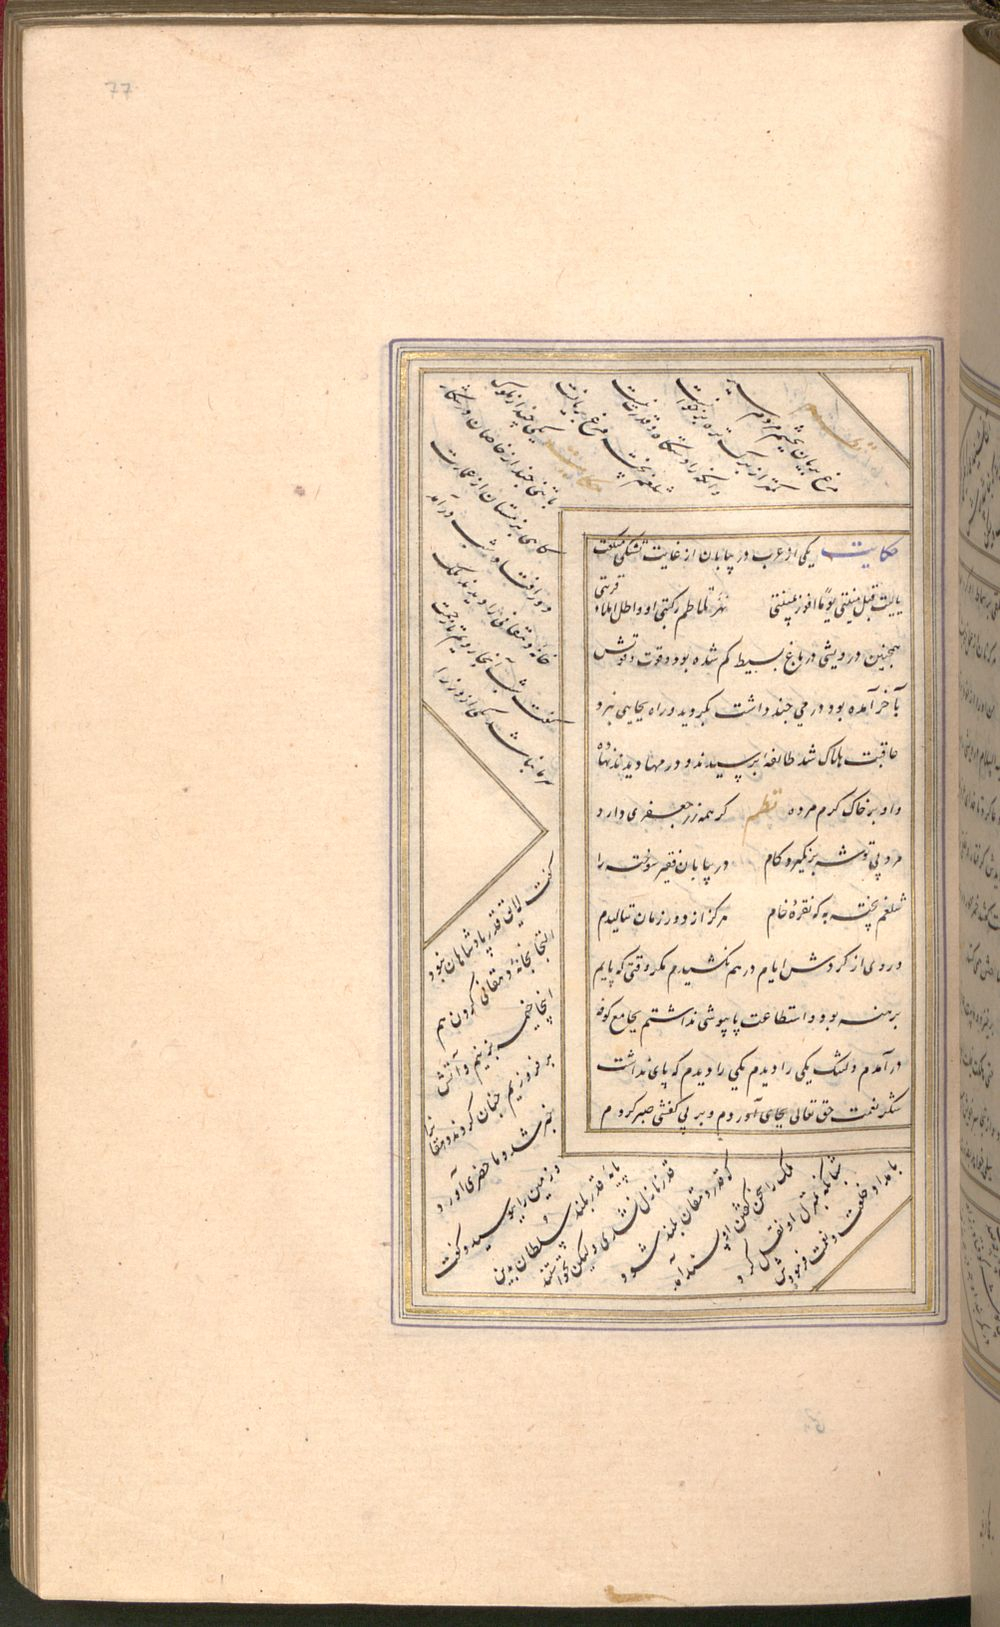 77
حکایت یکی از عرب در بیابان از غایت تشنگی میگفت
یالیت قبل منیتی یوما افوز بمنیتی نهر تلاطم رکبتی او واظل املاء قربتی
همچنین درویشی در باغ بسیط کم شده بود و قوت و قوتش
بآخر آمده بود درمی چند داشت بگردید و راه بجایی نبرد
عاقبت هلاک شد طایفه برسیدند و درمها دیدند نهاده
و او بر خاک کرم مرده نظم کر همه زر جعفری دارد
مرد بی توشه بر نکیرد کام در بیابان فقیر سوخته را
شلغم پخته به که نقره خام هرکز از دور زمان ننالیدم
و روی از کردش ایام درهم نکشیدم مکر وقتی که پایم
برهنه بود و استطاعت پاپوشی نداشتم بجامع کوفه
درآمدم دلتنک یکی را دیدم یکی را دیدم که پای نداشت
شکر نعمت حق تعالی بجای آوردم و بر بی کفشی صبر کردم
مرغ بریان بچشم مردم سیر
کمتر از برک تره بر خوانست
وانکه را دستکاه و قدرت نیست
شلغم پخته مرغ بریانست
حکایت یکی چند از ملوک
با تنی چند از خاصان در شکار
کاهی بزمستان از عمارت
دور افتاد شب درآمد
خانه دهقانی را دیدند ملک
کفت شب آنجا رویم تا زحمت
سرما نباشد یکی از وزرا
کفت لایق قدر پادشاهان نبود
التجا بخانه دهقانی کردن هم
اینجا خیمه بزنیم و آتش
برفروزیم چنان کردند دهقانرا
خبر شد و ماحضری آورد
و زمین را ببوسید و کفت
پایه قدر بلند سلطان بدین
قدر نازل نشدی ولیکن نخواستند
که قدر دهقان بلند شود
ملک را سخن کفتن او پسند آمد
شبانکه بمنزل او نقل کرد
بامداد خلعت و نعمت فرمودش